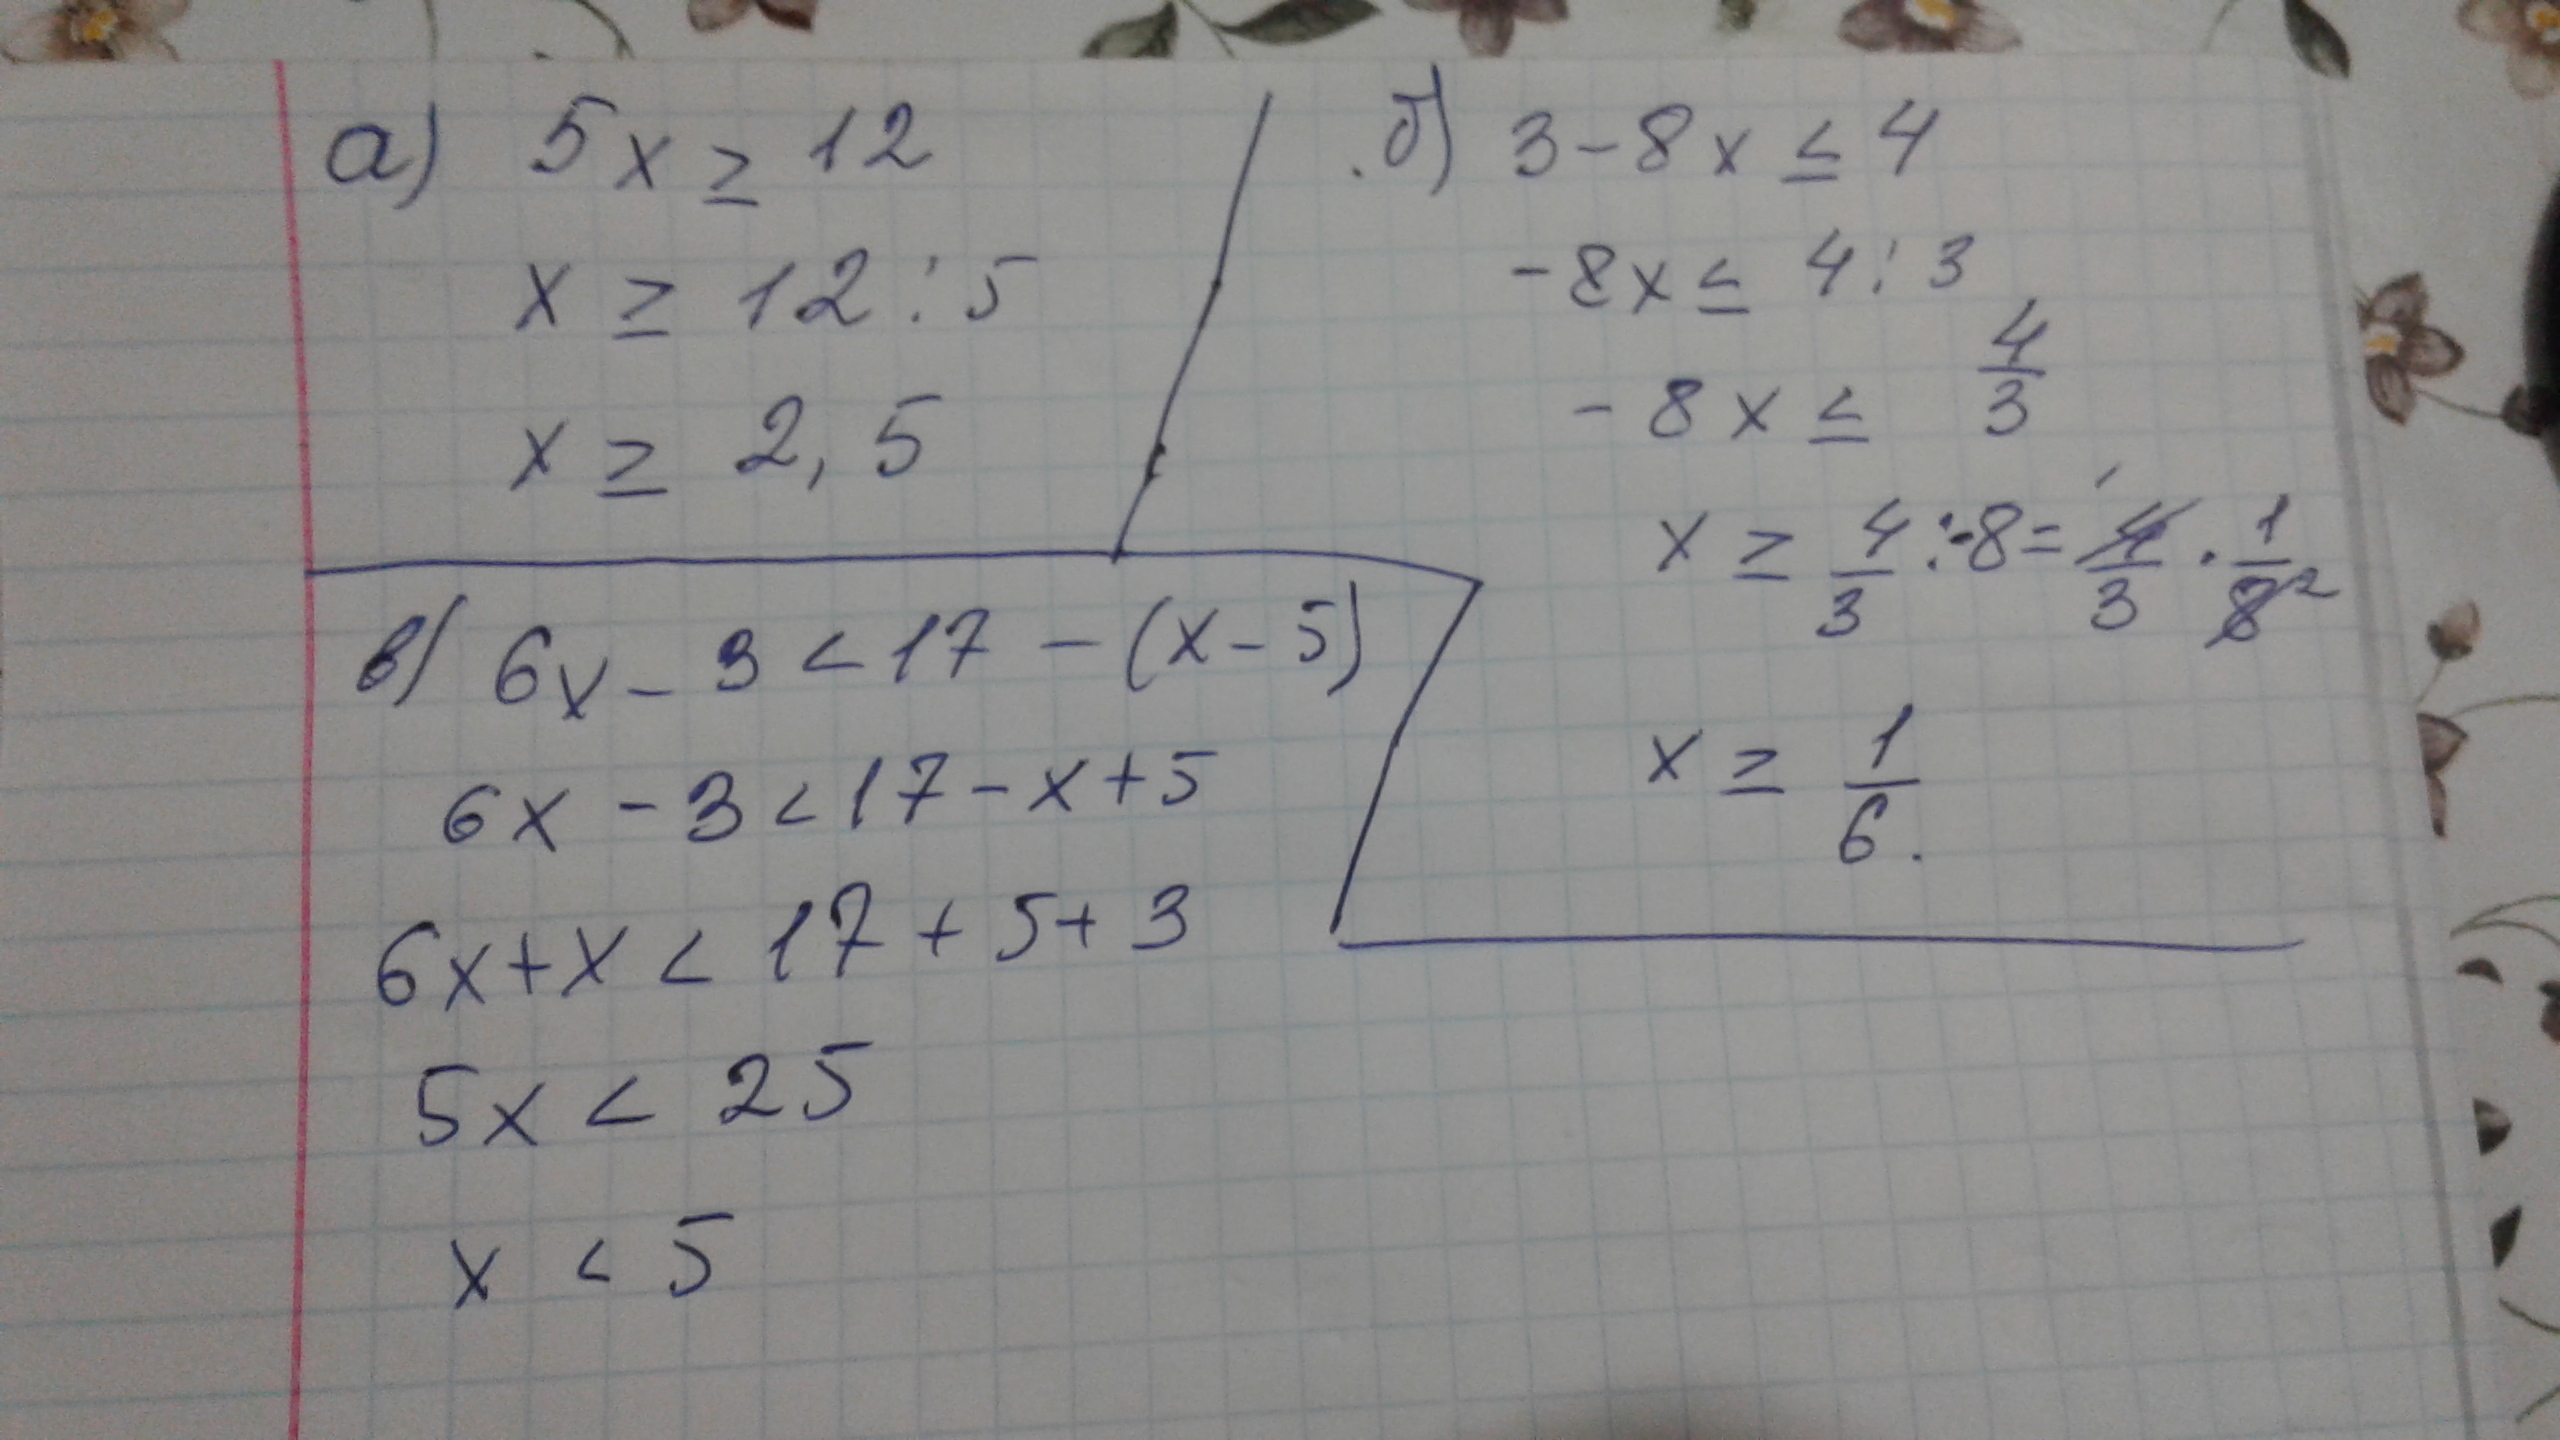 а) 5x ≥ 12
x ≥ 12 : 5
x ≥ 2,5
б) 3 - 8x ≤ 4
-8x ≤ 4 : 3
-8x ≤ 4/3
x ≥ 4/3 : -8 = 4/3 · 1/8 2
x ≥ 1/6.
в) 6x - 3 < 17 - (x - 5)
6x - 3 < 17 - x + 5
6x + x < 17 + 5 + 3
5x < 25
x < 5